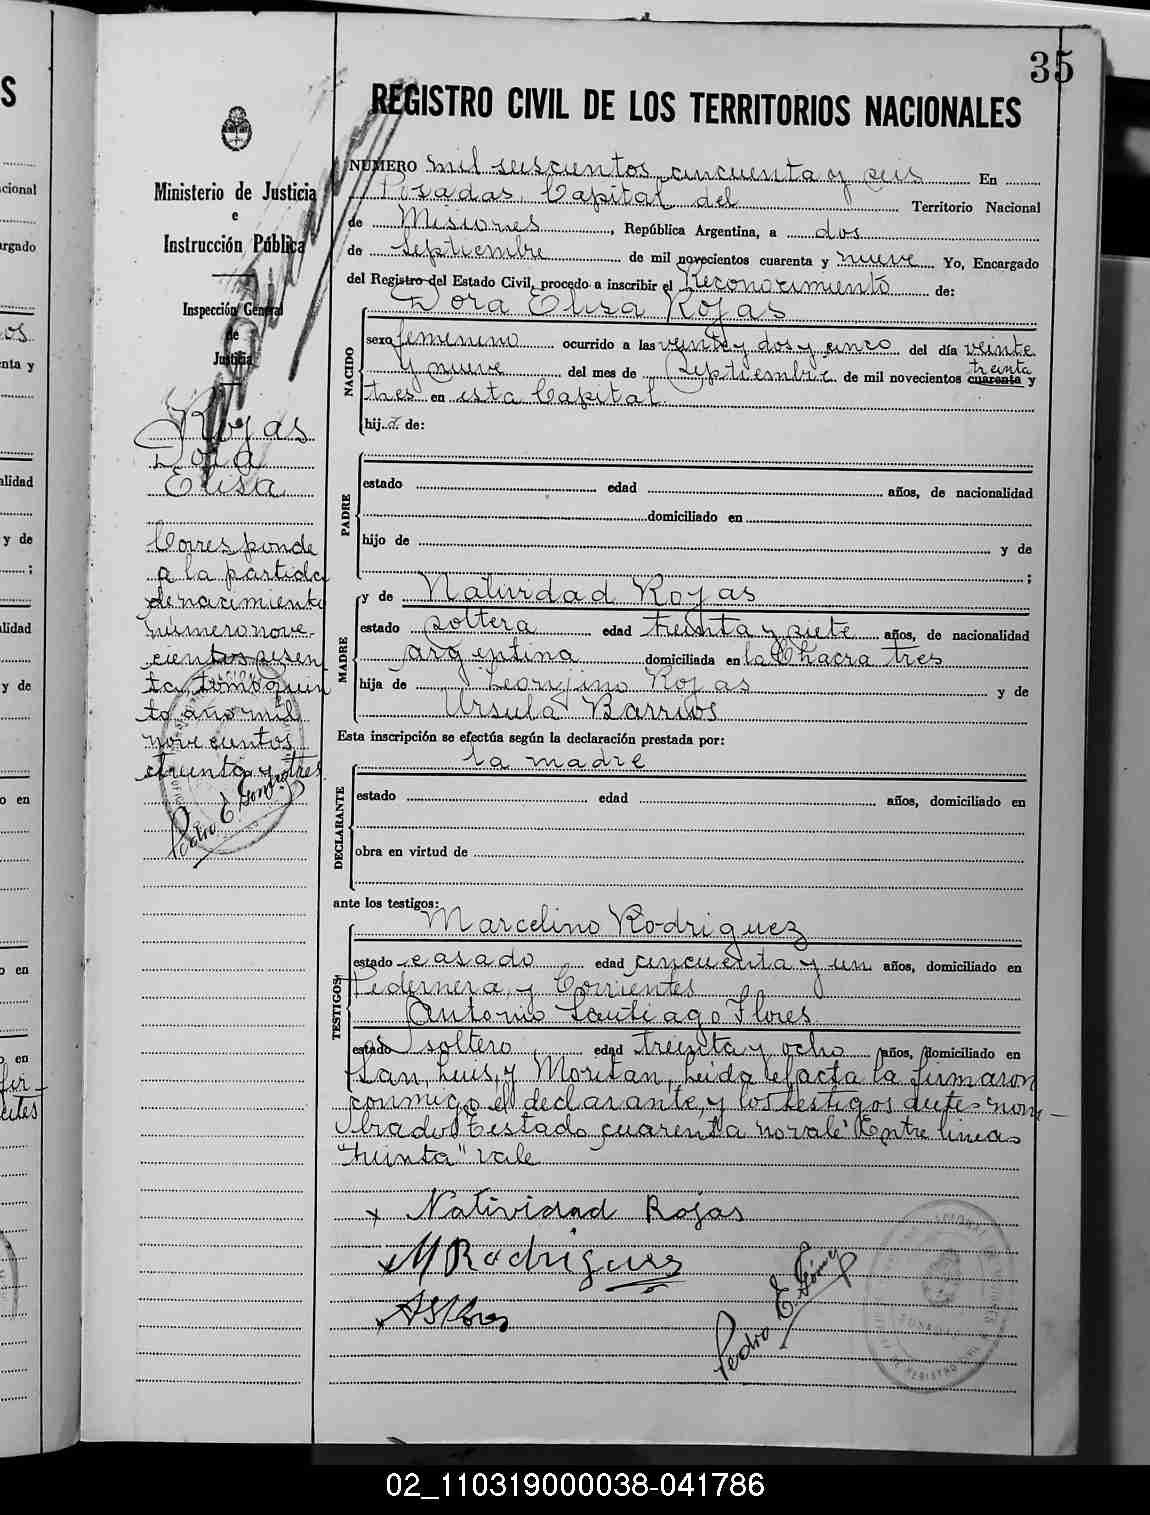 35
REGISTRO CIVIL DE LOS TERRITORIOS NACIONALES
Ministerio de Justicia
e
Instrucción Pública
Inspección General
de
Justicia
Rojas
Dora
Elisa
Corresponde
a la partida
de nacimiento
número nove-
cientos sesen
ta, tomo quin
to año mil
novecientos
treinta y tres
Pedro E. Gómez
NÚMERO mil seiscientos cincuenta y seis En
Posadas, Capital del Territorio Nacional
de Misiones, República Argentina, a dos
de Septiembre de mil novecientos cuarenta y nueve Yo, Encargado
del Registro del Estado Civil, procedo a inscribir el Reconocimiento de:
Dora Elisa Rojas
NACIDO
sexo femenino ocurrido a las veinte y dos y cinco del día veinte
treinta
y nueve del mes de Septiembre de mil novecientos cuarenta y
tres en esta Capital
hija de:
PADRE
estado edad años, de nacionalidad
domiciliado en
hijo de y de
;
MADRE
y de Natividad Rojas
estado soltera edad treinta y siete años, de nacionalidad
argentina domiciliada en la Chacra tres
hija de Leonjino Rojas y de
Ursula Barrios
Esta inscripción se efectúa según la declaración prestada por:
la madre
DECLARANTE
estado edad años, domiciliado en
obra en virtud de
ante los testigos:
TESTIGOS
Marcelino Rodriguez
estado casado edad cincuenta y un años, domiciliado en
Pedernera y Corrientes
Antonio Santiago Flores
estado soltero edad treinta y ocho años, domiciliado en
San Luis, y Moritan, Leida el acta la firmaron
conmigo el declarante, y los testigos antes nom-
brados Testado cuarenta no vale Entre lineas
"treinta" vale
x Natividad Rojas
M Rodrigues
A S Flores
Pedro E. Gómez
02_110319000038-041786